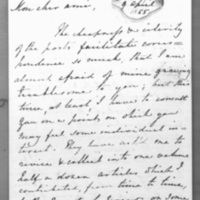 Mon cher ami,
9 April
The cheapness & celerity
of the posts facilitate corres-
pondence so much, that I am
almost afraid of mine growing
troublesome to you; but this
time, at least, I have to consult
you on a point, on which you
may feel some individual in-
terest. They have asked me to
revise & collect into one volume
half a dozen articles which I
contributed, from time to time,
on some